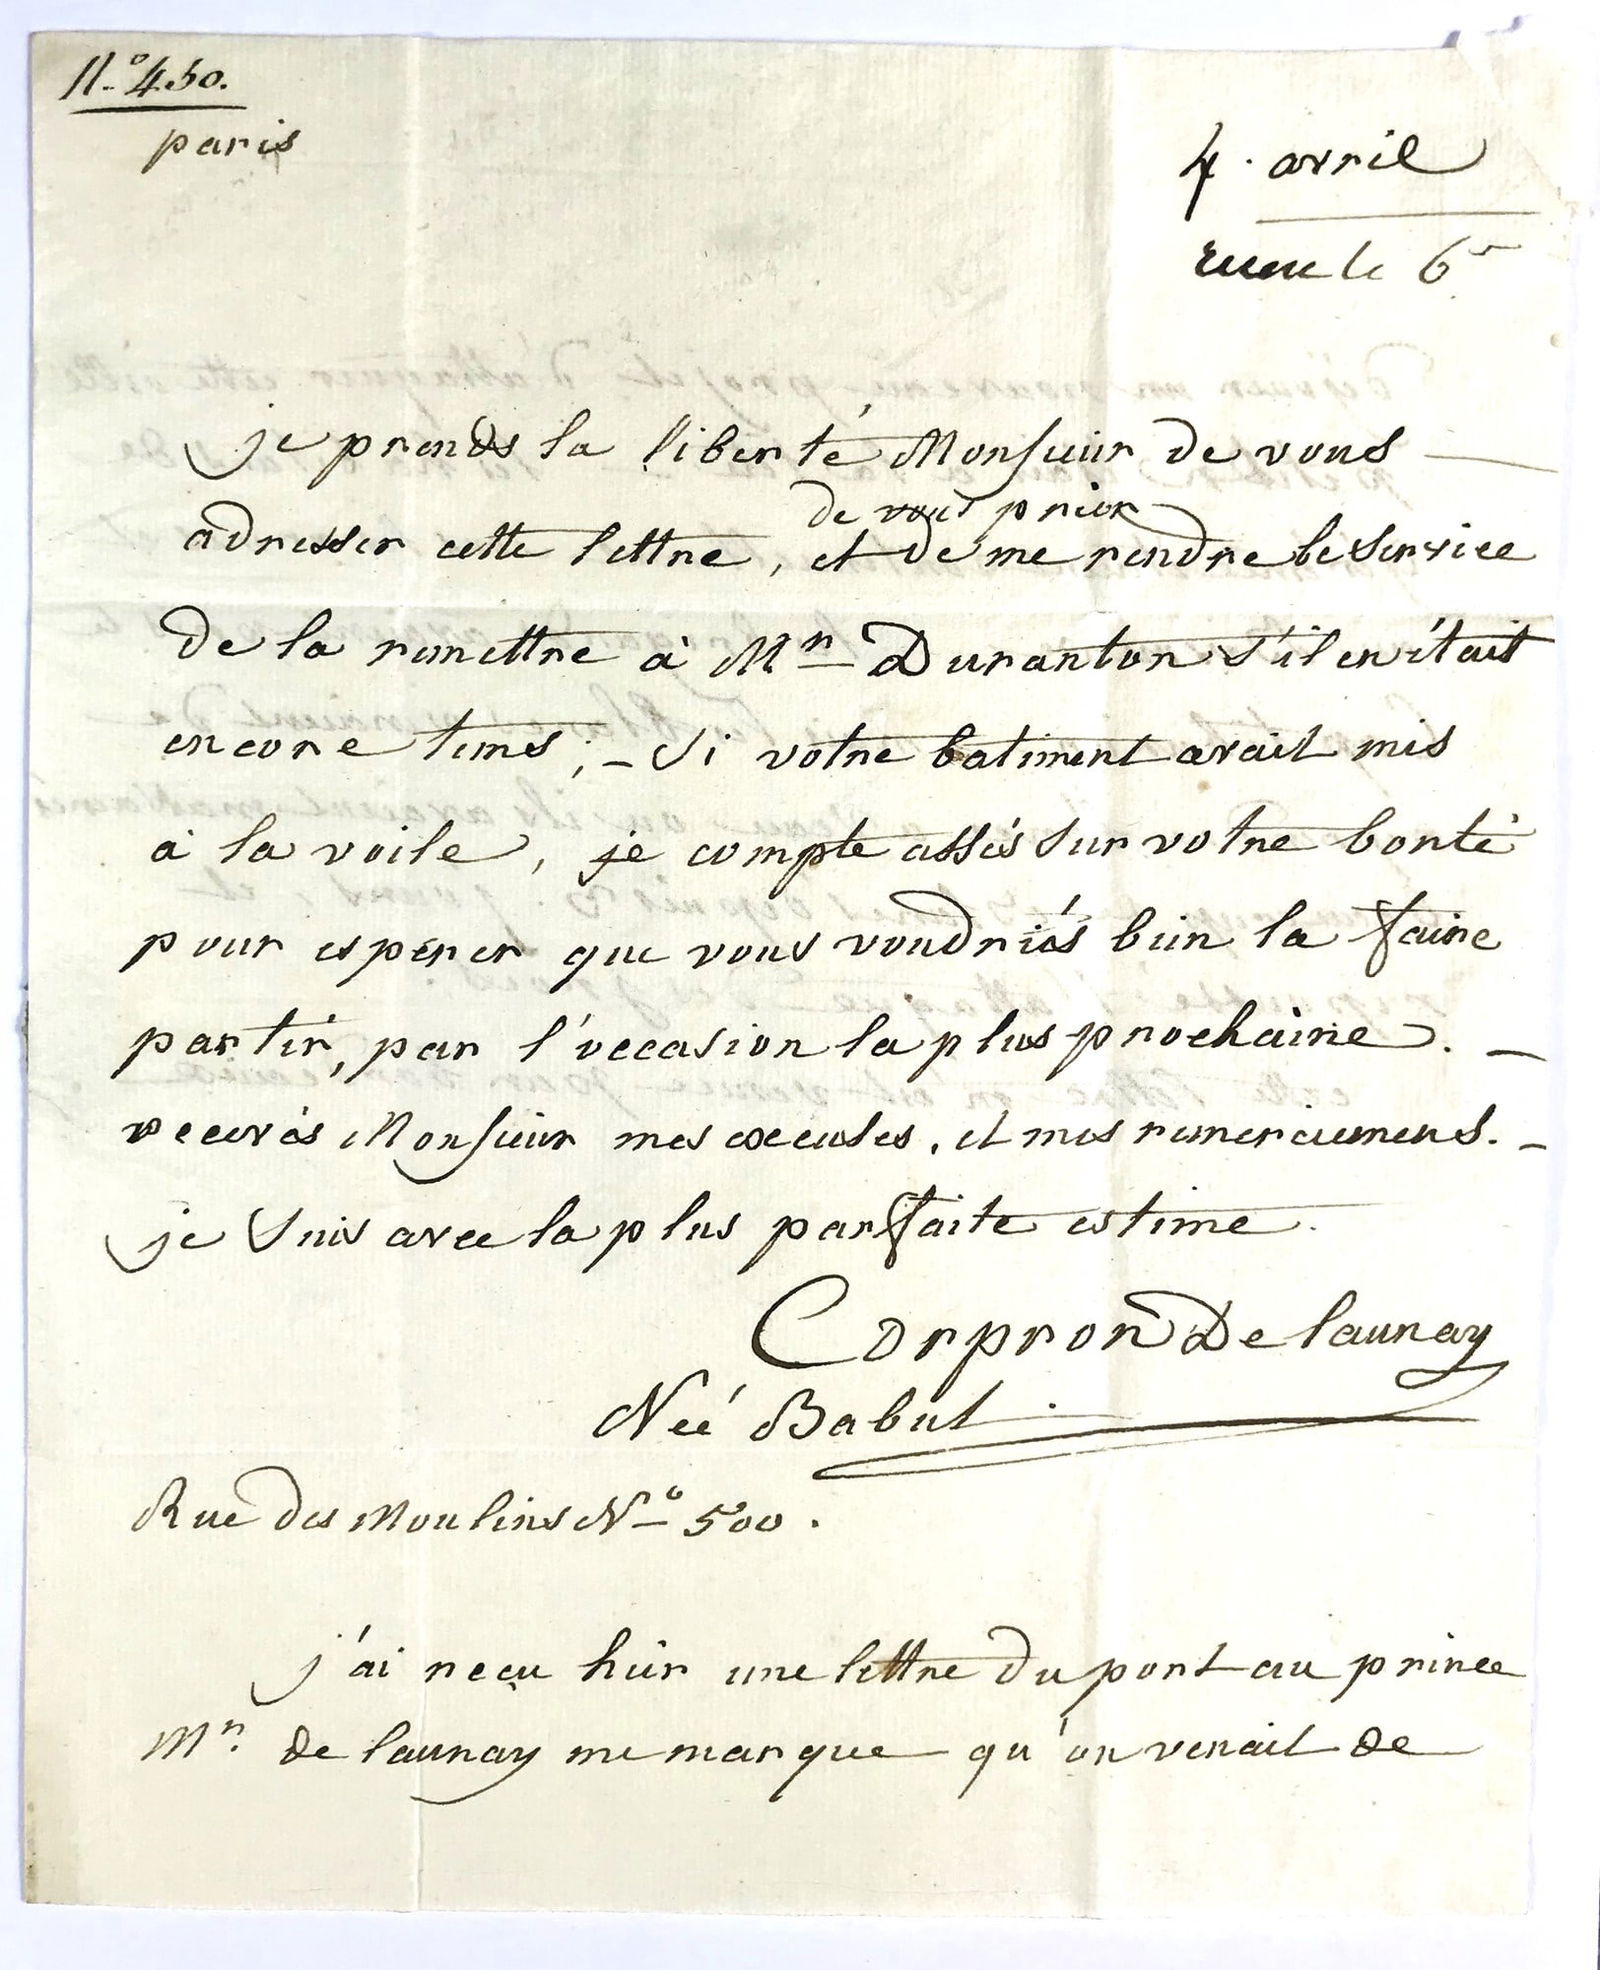 N.º 450.
paris
4. avril
reçue le 6
je prends la liberté Monsieur de vous
de vous prier
adresser cette lettre, et de me rendre le service
de la remettre à Mr Duranton s'il en était
encore tems; - Si votre batiment avait mis
à la voile, je compte assés sur votre bonté
pour esperer que vous voudriés bien la faire
partir, par l'occasion la plus prochaine. -
recevés Monsieur mes excuses, et mes remerciemens. -
je suis avec la plus parfaite estime.
Corpron De launay
Neé Babut
Rue des Moulins Nº 500.
j'ai reçu hier une lettre du port au prince
Mr. de launay me marque qu'on venait de